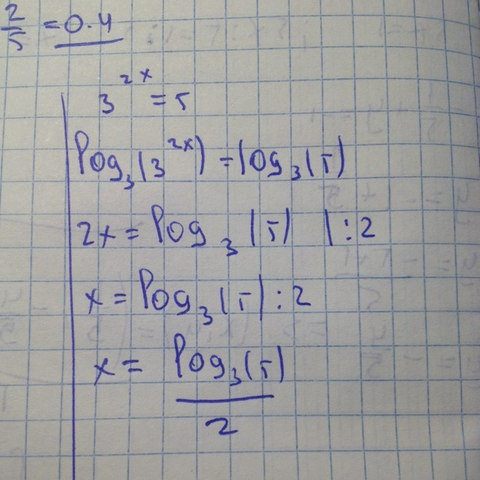 2/5 = 0.4
3^2x = 5
log₃(3^2x) = log₃(5)
2x = log₃(5) | :2
x = log₃(5) : 2
x = log₃(5)
2